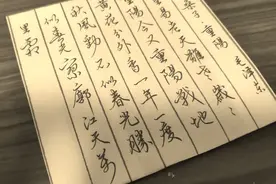 桑子 重陽 毛泽东
易老天難老歲々
陽今又重陽戰地
黄花分外香一年一度
秋風勁不似春光勝
似春光寥廓江天萬
里霜